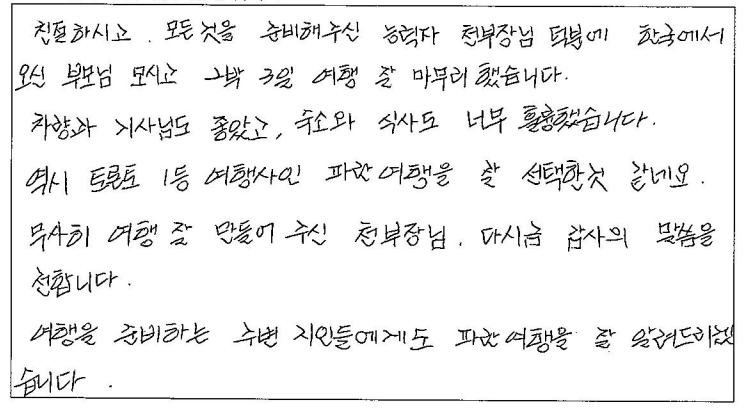 친절하시고. 모든것을 준비해주신 능력자 천부장님 덕분에 한국에서
오신 부모님 모시고 2박 3일 여행 잘 마무리 했습니다.
차량과 기사님도 좋았고, 숙소와 식사도 너무 훌륭했습니다.
역시 토론토 1등 여행사인 파란여행을 잘 선택한것 같네요.
무사히 여행 잘 만들어 주신 천부장님. 다시금 감사의 말씀을
전합니다.
여행을 준비하는 주변 지인들에게도 파란여행을 잘 알려드리겠
습니다.